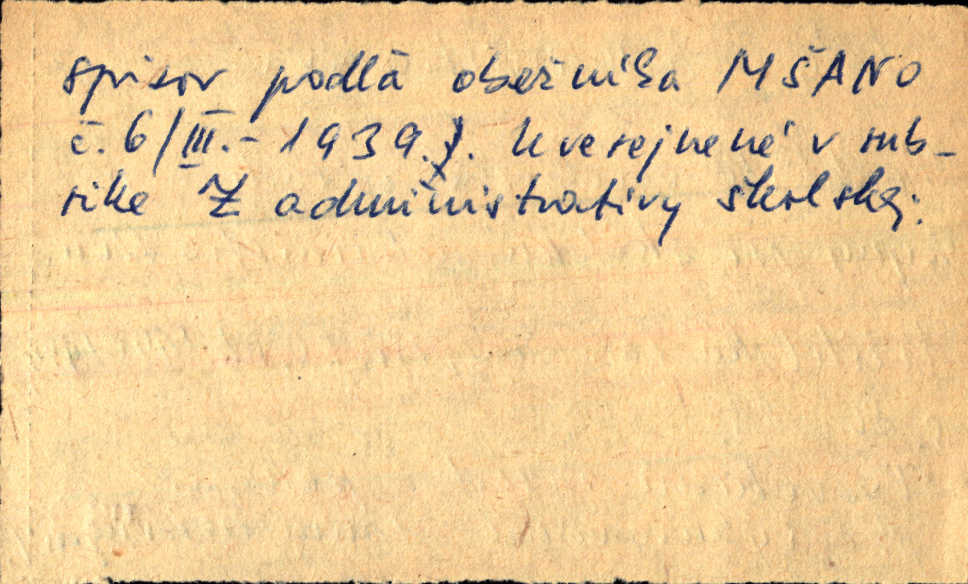 spisov podlã obežníka MŠANO
č. 6/III.-1939.). Uverejnené v rub-
rike Z administratívy školskej.